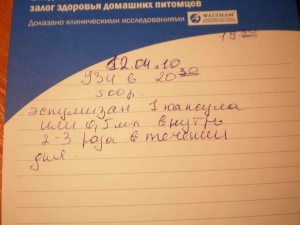 залог здоровья домашних питомцев
Доказано клиническими исследованиями
WALTHAM
19 30
12.04.10
УЗИ в 20 30
500 р.
эспумизан 1 капсула
или 0,5 мл внутрь
2-3 раза в течении
дня.